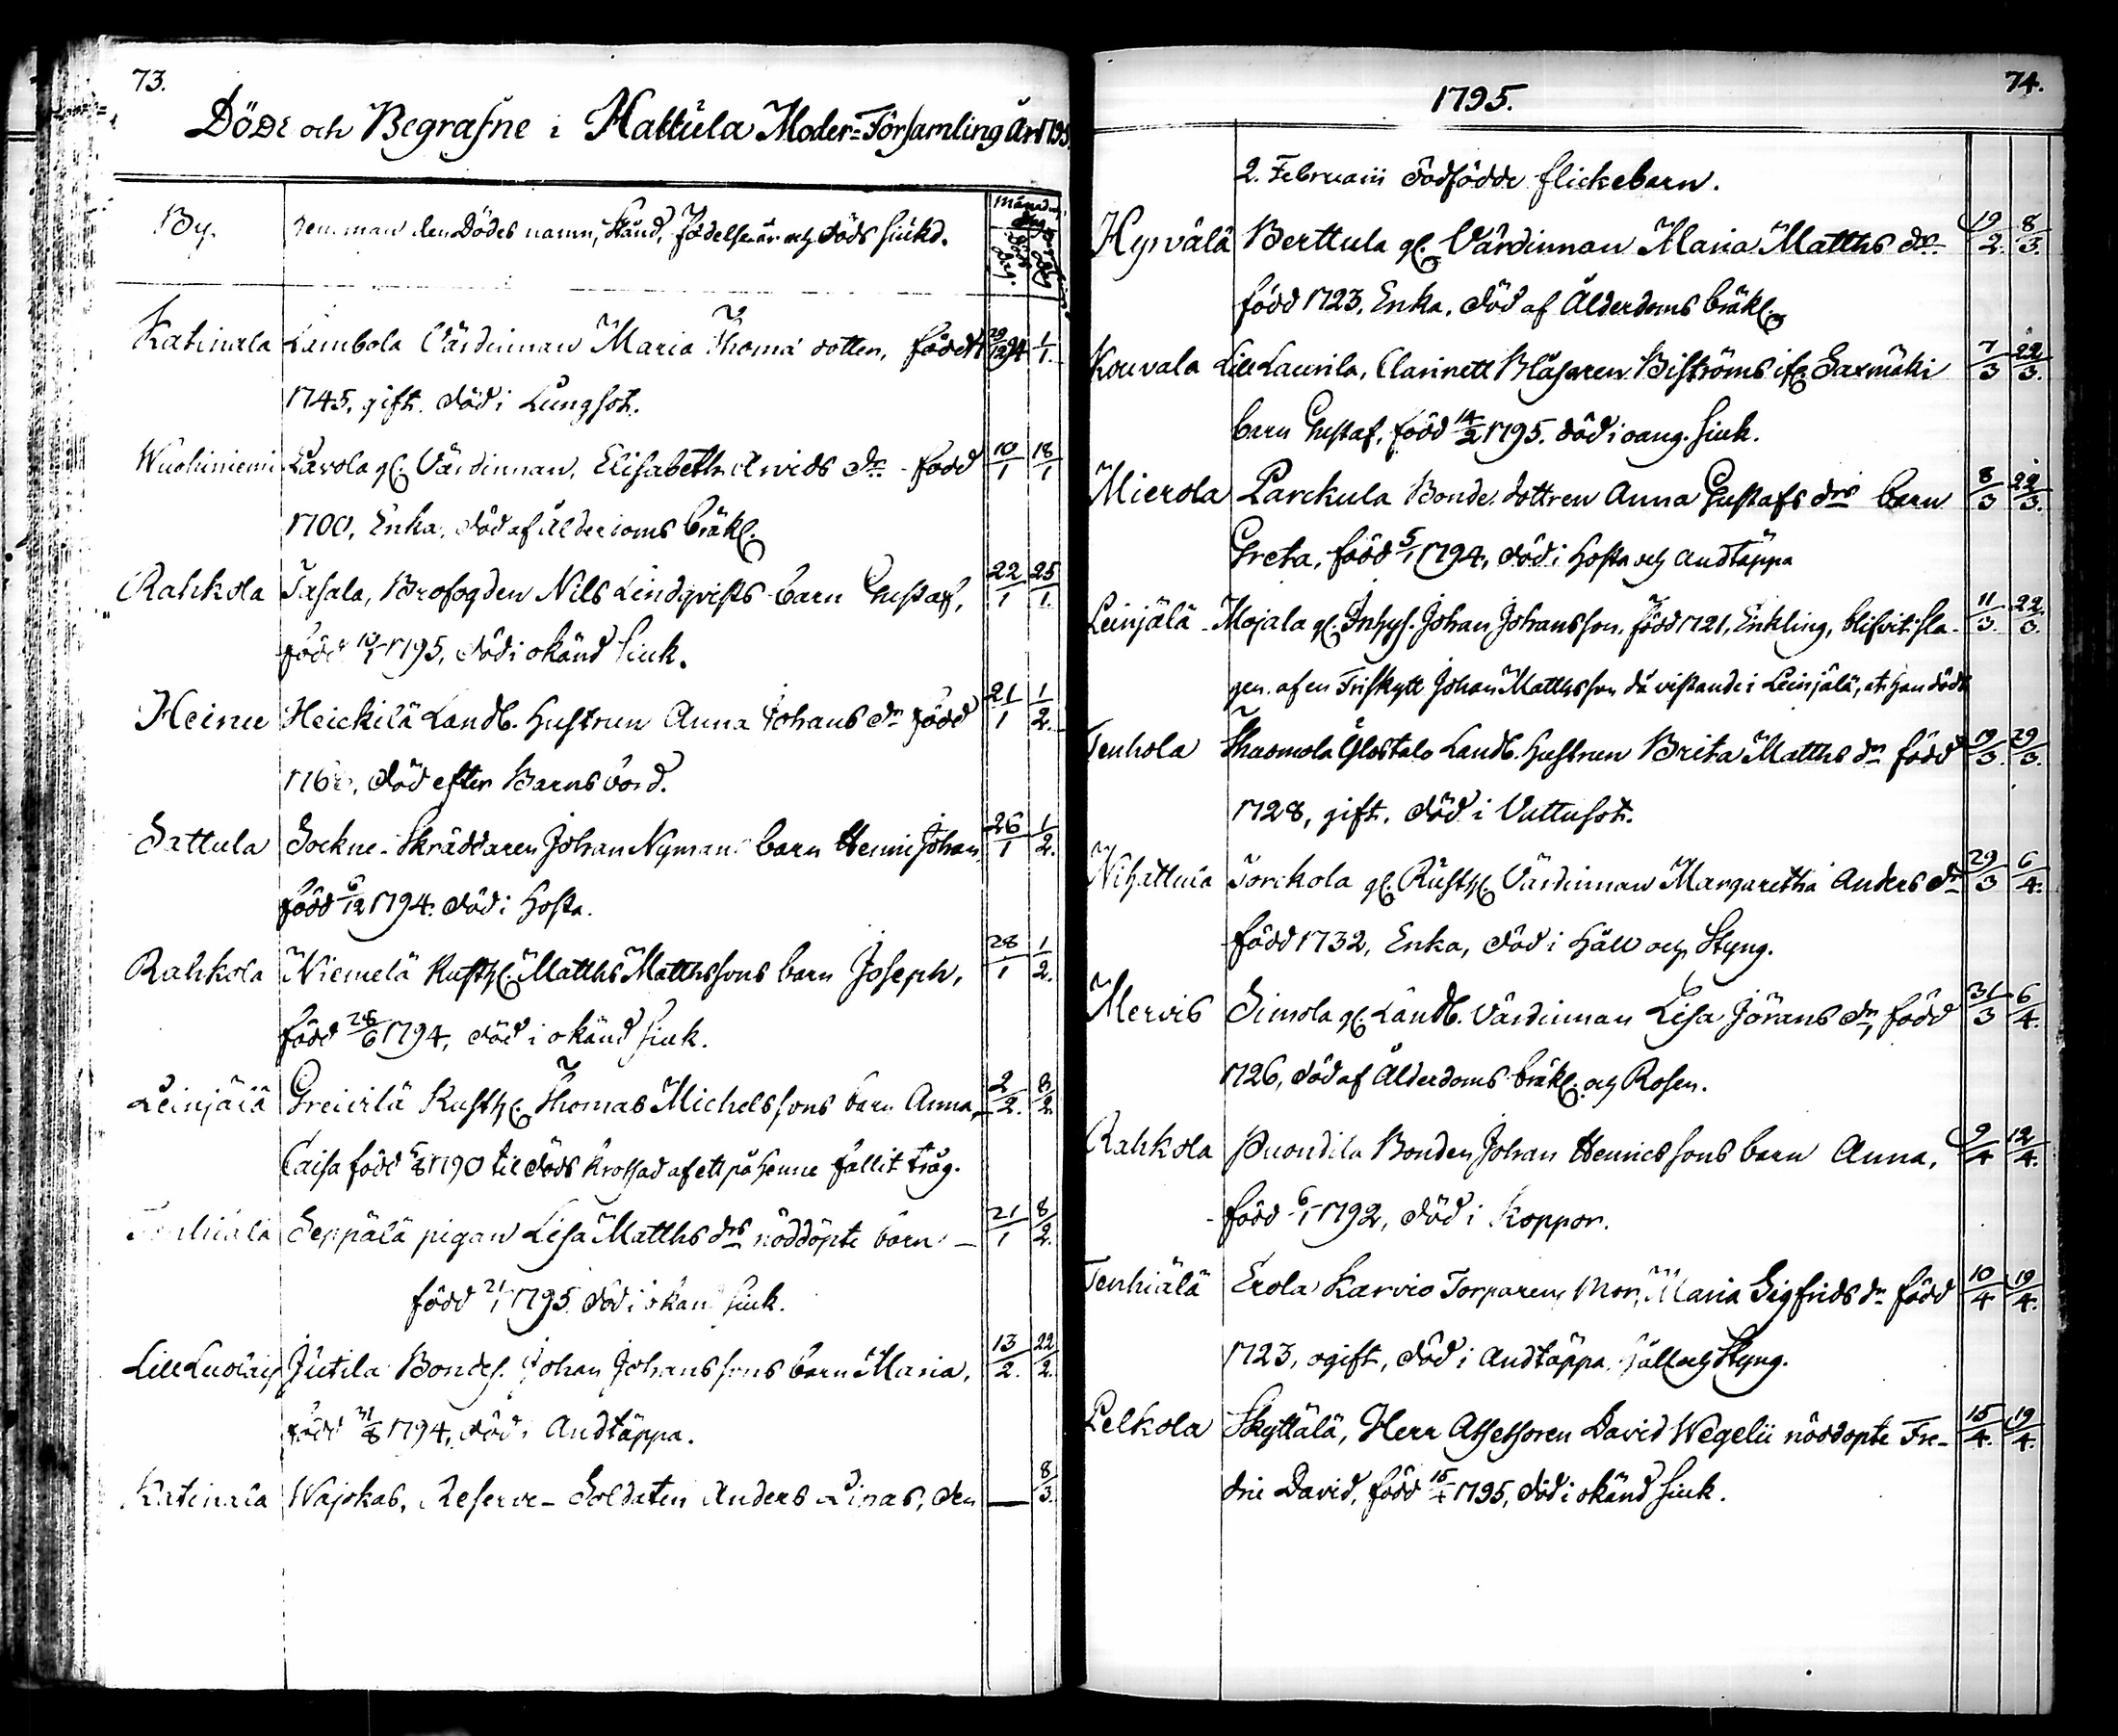 73.
Döde och Begrafne i Hattula Moder=Församling År 1795
By. man den Dödes namn, Stånd, Födelse år och döds siukd. Månad Dag
Katinala Lambola Värdinnan Maria Thomæ dotter, född 29/12 94 1/1.
1745, gift. död i Lungsot.
Wuohiniemi Lavola gl. Värdinnan, Elisabeth Arvids dr. född 10/1 18/1
1700, Enka, död af Ålderdoms bräkl.
Rahkola Brofogden Nils Lindqvists barn Gustaf, 22/1 25/1.
född 10/1 1795, död i okänd siuk.
Heinu Heickilä Landb. hustrun Anna Johans dr född 21/1 1/2.
död efter Barnsbörd.
Sattula Sockne-Skräddaren Johan Nymans barn Henric Johan, 26/1 1/2.
född 6/12 1794. död i hosta.
Rahkola Niemelä Rusth. Matths Matthssons barn Joseph, 28/1 1/2.
född 28/6 1794, död i okänd siuk.
Leinjälä Rusth. Thomas Michelssons barn Anna 2/2. 8/2.
Caisa född 1790 til döds krossad af ett på henne fallit träg.
Tenhiälä Seppälä pigan Lisa Matths drs nöddöpte barn — 21/1 8/2.
född 21/1 1795. död i okänd siuk.
Lill Luolais Jutila Bondes. Johan Johanssons barn Maria, 13/2. 22/2.
född 31/8 1794, död i Andtäppa.
Katinala Wajokas, Reserve-Soldaten Anders Linas, den — 8/3.
1795. 74.
2. Februarii dödfödde flickebarn.
Hyrvälä Berttula gl. Värdinnan Maria Matths dr. 19/2. 8/3.
född 1723, Enka, död af Ålderdoms bräkl.
Kouvala Lill Laurila, Clarinett Blåsaren Biströms Saxmäki 7/3 22/3.
barn Gustaf, född 14/2 1795. död i oang. siuk.
Mierola Parckula Bonde dottren Anna Gustafs drs barn 8/3 22/3.
Greta, född 5/1 1794, död i hosta och andtäppa
Leinjälä Mojala gl. Inhys. Johan Johansson, född 1721, Enkling, blifvit sla- 11/3. 22/3.
gen af en Friskytt Johan Matthsson då vistande i Leinjälä, at han dödt
Tenhola Landb. hustrun Brita Matths dr född 19/3. 29/3.
1728, gift. död i Vattusot.
Nihattula Torckola gl. Rusth. Värdinnan Margaretha Anders dr 29/3 6/4.
född 1732, Enka, död i håll och Styng.
Mervis Simola gl. Landb. Värdinnan Lisa Jörans dr, född 31/3 6/4.
1726, död af Ålderdoms bräkl. och Rosen.
Rahkola Puondila Bonden Johan Henricssons barn Anna, 9/4 12/4.
född 6/1 1792, död i Koppor.
Tenhiälä Erola Karvio Torparens Mor, Maria Sigfrids dr född 10/4 19/4.
1723, ogift, död i Andtäppa, håll och Styng.
Pelkola Skyttälä, Herr Assessoren David Wegelii nöddöpte Fre- 15/4. 19/4.
dric David, född 15/4 1795, död i okänd siuk.